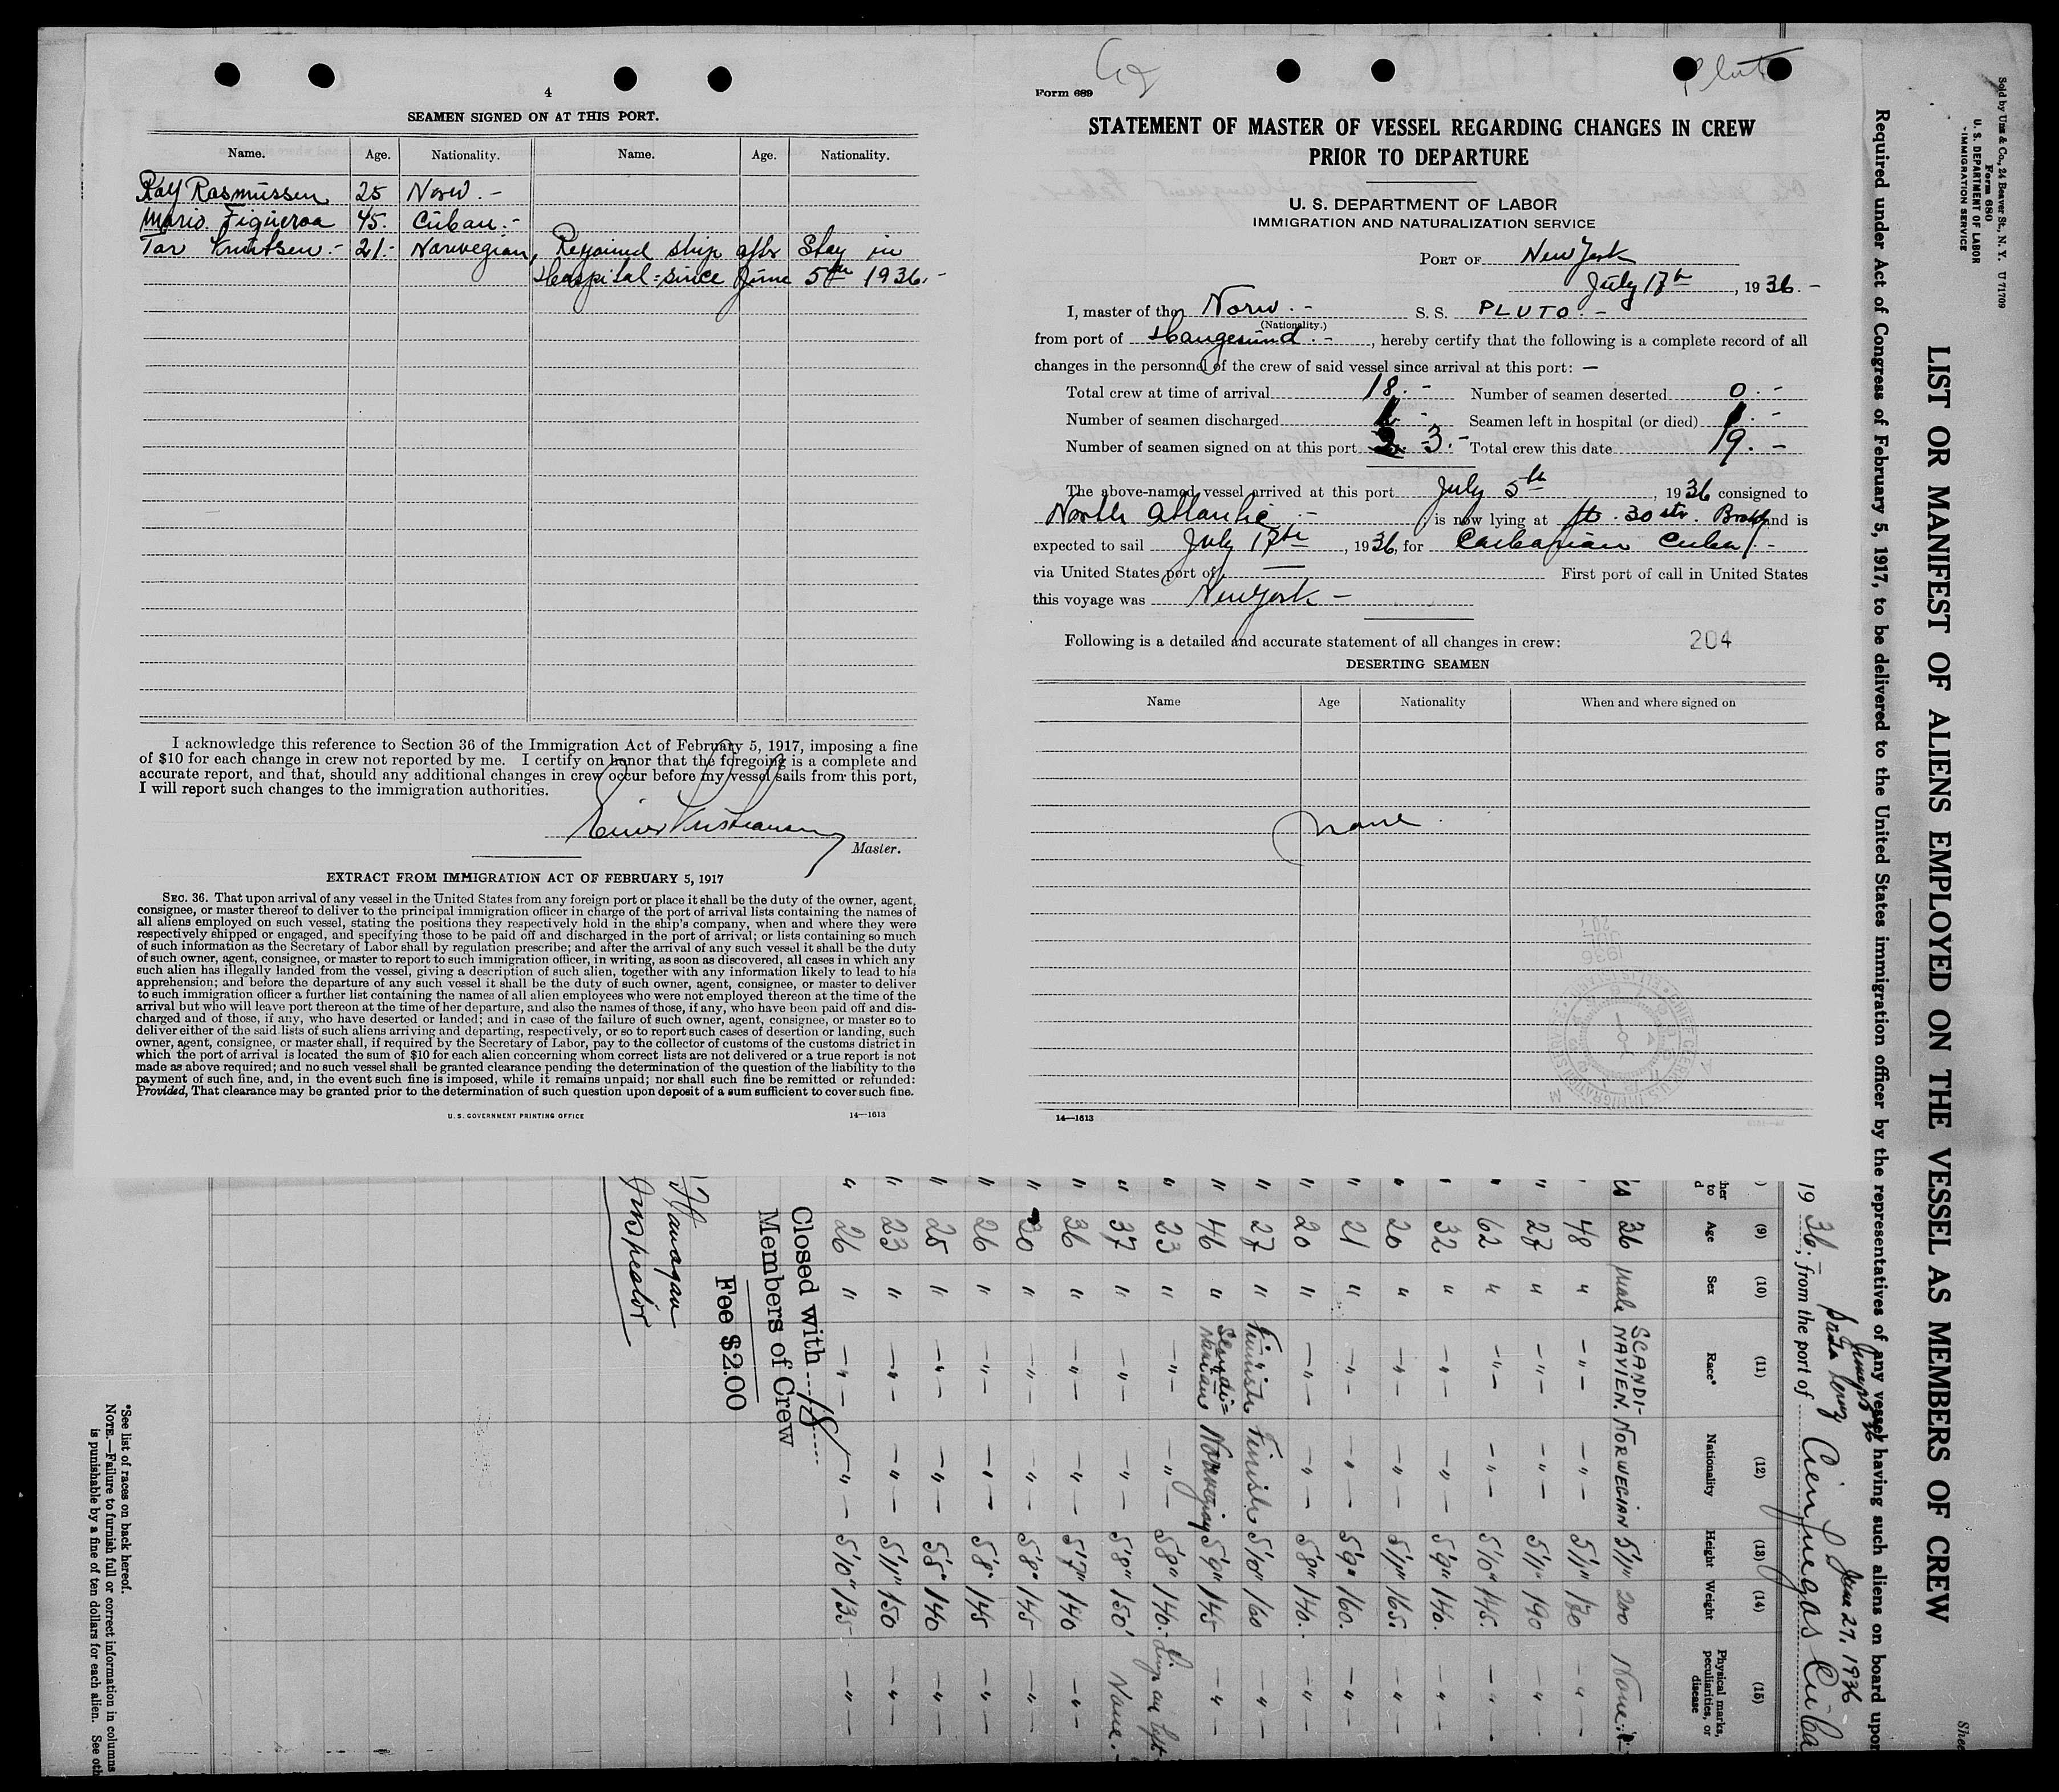 4
SEAMEN SIGNED ON AT THIS PORT.
Name. Age. Nationality. Name. Age. Nationality.
Ralf Rasmussen 25 Norw. -
Mario. Figueroa 45. Cuban. -
Tor Knutsen - 21 - Norwegian, Rejoined ship aftr Stay in
Hospital = since June 5th 1936. -
I acknowledge this reference to Section 36 of the Immigration Act of February 5, 1917, imposing a fine
of $10 for each change in crew not reported by me. I certify on honor that the foregoing is a complete and
accurate report, and that, should any additional changes in crew occur before my vessel sails from this port,
I will report such changes to the immigration authorities.
Einar Kristiansen
Master.
EXTRACT FROM IMMIGRATION ACT OF FEBRUARY 5, 1917
SEC. 36. That upon arrival of any vessel in the United States from any foreign port or place it shall be the duty of the owner, agent,
consignee, or master thereof to deliver to the principal immigration officer in charge of the port of arrival lists containing the names of
all aliens employed on such vessel, stating the positions they respectively hold in the ship's company, when and where they were
respectively shipped or engaged, and specifying those to be paid off and discharged in the port of arrival; or lists containing so much
of such information as the Secretary of Labor shall by regulation prescribe; and after the arrival of any such vessel it shall be the duty
of such owner, agent, consignee, or master to report to such immigration officer, in writing, as soon as discovered, all cases in which any
such alien has illegally landed from the vessel, giving a description of such alien, together with any information likely to lead to his
apprehension; and before the departure of any such vessel it shall be the duty of such owner, agent, consignee, or master to deliver
to such immigration officer a further list containing the names of all alien employees who were not employed thereon at the time of the
arrival but who will leave port thereon at the time of her departure, and also the names of those, if any, who have been paid off and dis-
charged and of those, if any, who have deserted or landed; and in case of the failure of such owner, agent, consignee, or master so to
deliver either of the said lists of such aliens arriving and departing, respectively, or so to report such cases of desertion or landing, such
owner, agent, consignee, or master shall, if required by the Secretary of Labor, pay to the collector of customs of the customs district in
which the port of arrival is located the sum of $10 for each alien concerning whom correct lists are not delivered or a true report is not
made as above required; and no such vessel shall be granted clearance pending the determination of the question of the liability to the
payment of such fine, and, in the event such fine is imposed, while it remains unpaid; nor shall such fine be remitted or refunded:
Provided, That clearance may be granted prior to the determination of such question upon deposit of a sum sufficient to cover such fine.
U. S. GOVERNMENT PRINTING OFFICE 14—1613
Pluto
Form 689
STATEMENT OF MASTER OF VESSEL REGARDING CHANGES IN CREW
PRIOR TO DEPARTURE
U. S. DEPARTMENT OF LABOR
IMMIGRATION AND NATURALIZATION SERVICE
PORT OF New York
July 17th, 1936. -
I, master of the Norw. - S. S. PLUTO. -
(Nationality.)
from port of Haugesund. -, hereby certify that the following is a complete record of all
changes in the personnel of the crew of said vessel since arrival at this port: —
Total crew at time of arrival 18. - Number of seamen deserted 0. -
Number of seamen discharged 1 - Seamen left in hospital (or died) 1. -
Number of seamen signed on at this port 3. - Total crew this date 19. -
The above-named vessel arrived at this port July 5th, 1936 consigned to
North Atlantic -, is now lying at ft. 30 str. Brokl and is
expected to sail July 17th, 1936, for Caibarian Cuba. -
via United States port of — First port of call in United States
this voyage was New York —
Following is a detailed and accurate statement of all changes in crew: 204
DESERTING SEAMEN
Name Age Nationality When and where signed on
None.
14—1613
Sold by Unz & Co., 24 Beaver St., N. Y. U 71709
Form 680
U. S. DEPARTMENT OF LABOR
IMMIGRATION SERVICE
Shee
LIST OR MANIFEST OF ALIENS EMPLOYED ON THE VESSEL AS MEMBERS OF CREW
Required under Act of Congress of February 5, 1917, to be delivered to the United States immigration officer by the representatives of any vessel having such aliens on board upon
June 27. 1936
1936. -, from the port of Cienfuegos Cuba
(9) (10) (11) (12) (13) (14) (15)
Age Sex Race* Nationality Height Weight Physical marks, peculiarities, or disease
36 Male SCANDINAVIEN. NORWEGIAN 5'11" 200 None. -
" 48 " — " — — " — 5'11" 170 — " —
" 27 " — " — — " — 5'11" 190 — " —
" 62 " — " — — " — 5'10" 145. — " —
" 32 " — " — — " — 5'9" 140. — " —
" 20 " — " — — " — 5'11" 165. — " —
" 21 " — " — — " — 5'9" 160. — " —
" 20 " — " — — " — 5'8" 140. — " —
" 27 " Finish Finish 5'10" 160 — " —
" 46 " Scandi=navian Norwegian 5'9" 145 — " —
" 23 " — " — — " — 5'8" 140. -
" 37 " — " — — " — 5'8" 150 None. -
" 36 " — " — — " — 5'7" 140 — " —
" 30 " — " — — " — 5'8" 145 — " —
" 26 " — " — — " — 5'8" 145 — " —
" 25 " — " — — " — 5'5" 140 — " —
" 23 " — " — — " — 5'11" 150 — " —
" 26 " — " — — " — 5'10" 135 — " —
Closed with 18
Members of Crew
Fee $2.00
Inspector
*See list of races on back hereof.
NOTE.—Failure to furnish full or correct information in columns
is punishable by a fine of ten dollars for each alien. See oth